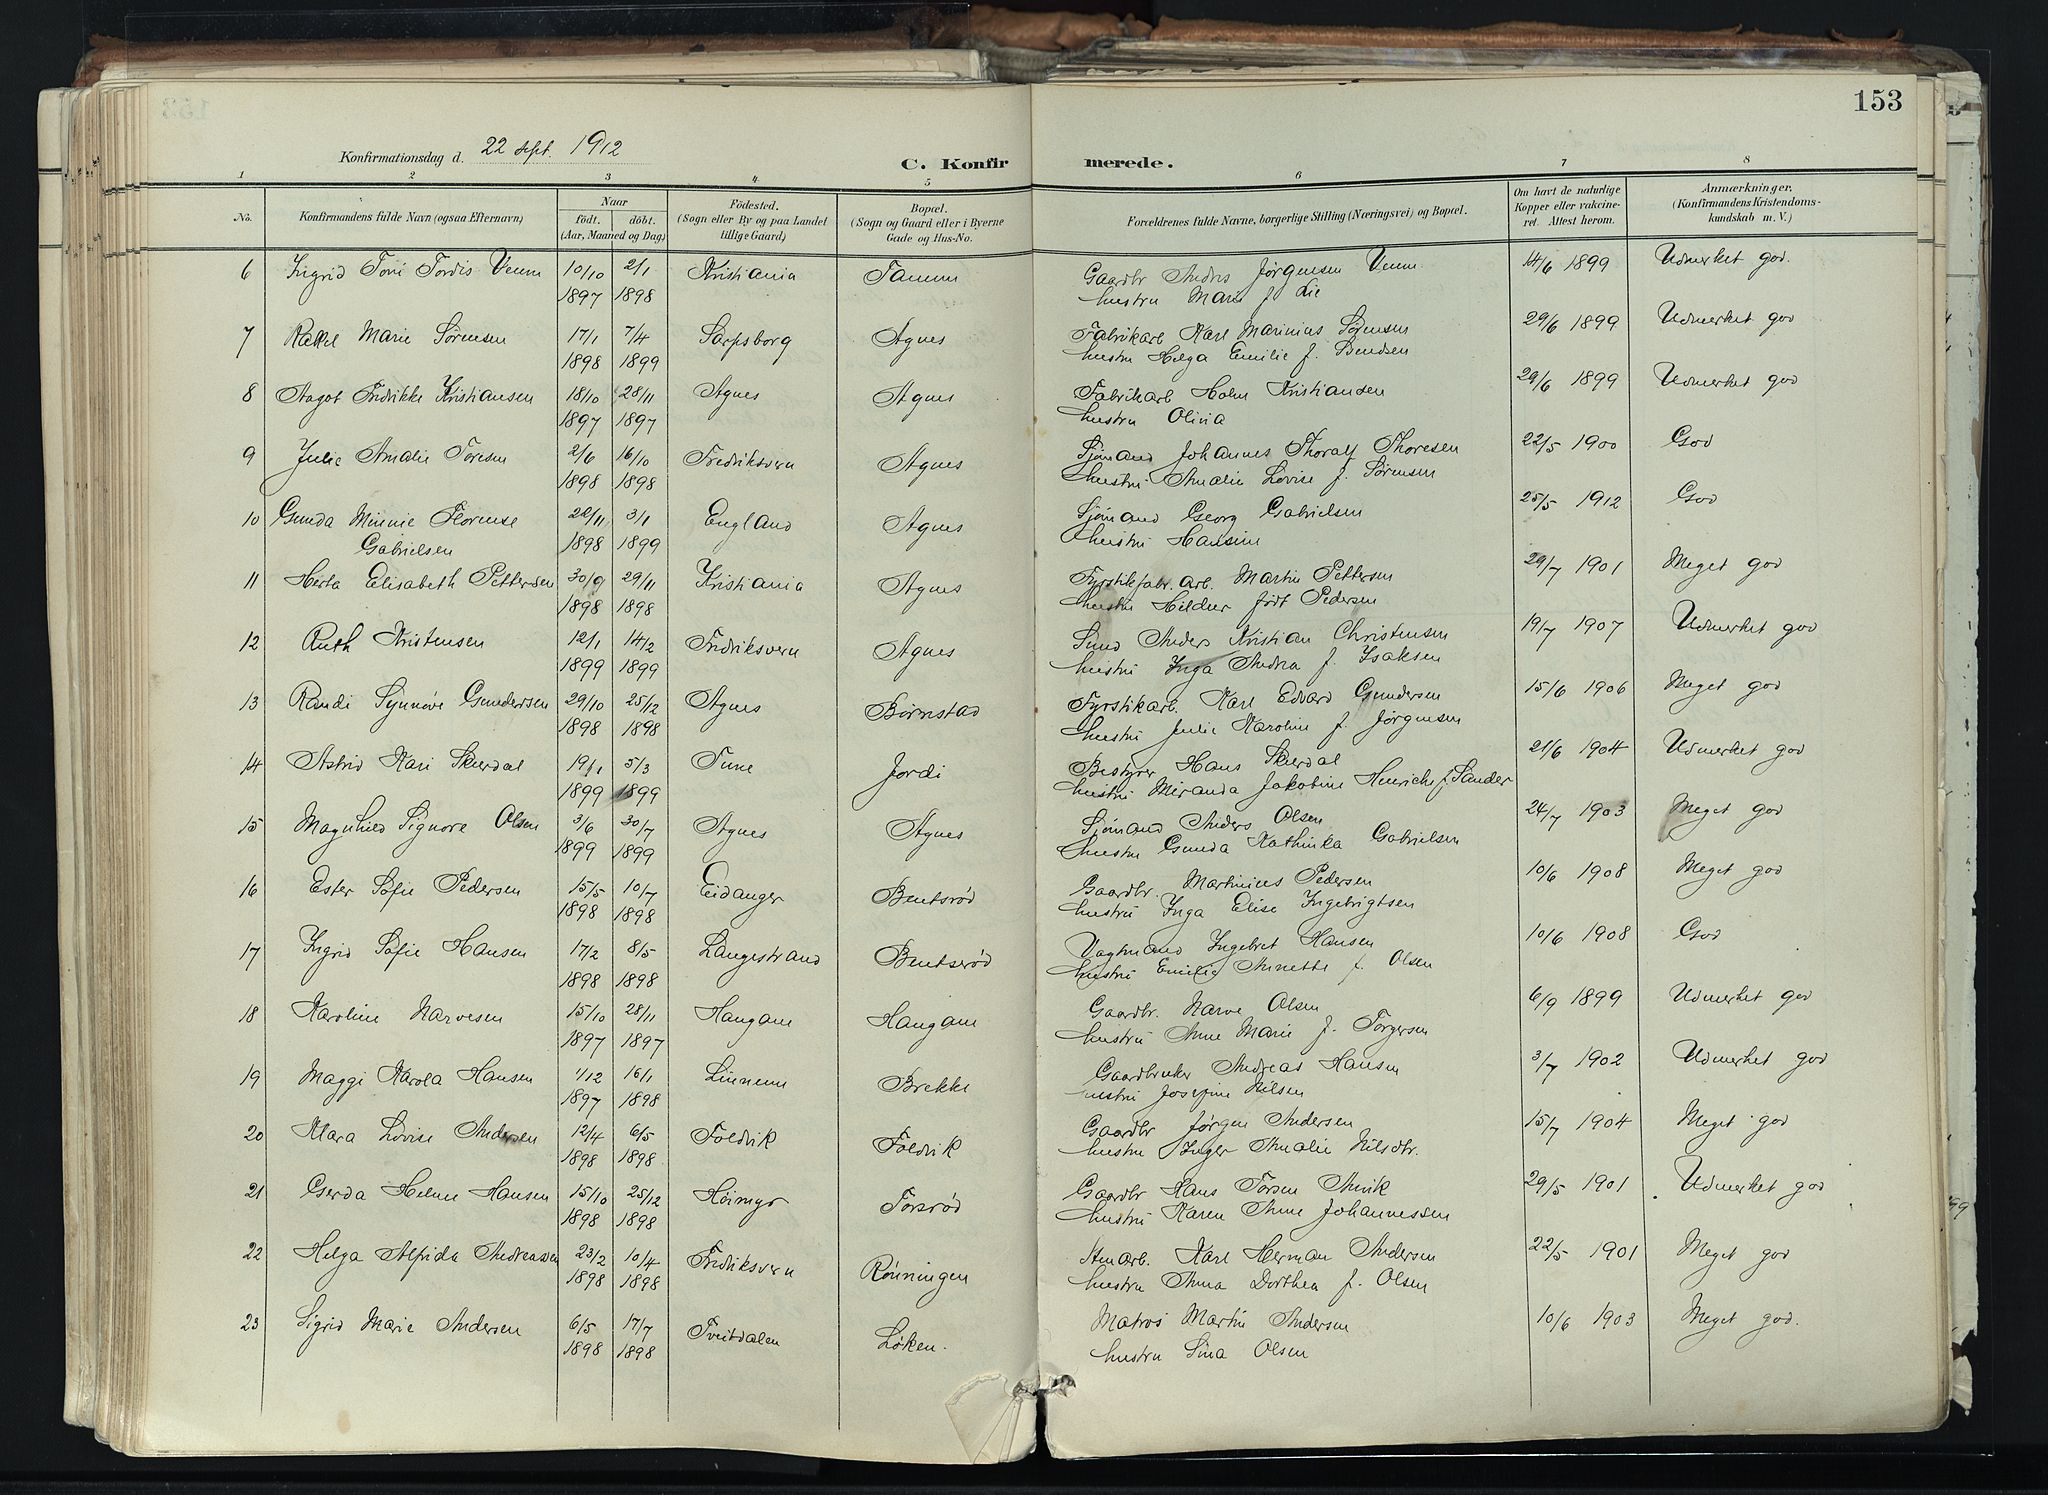 153
Konfirmationsdag d. 22 sept. 1912
C. Konfirmerede.
1 2 3 4 5 6 7 8
No. Konfirmandens fulde Navn (ogsaa Efternavn) Naar født. døbt. (Aar, Maaned og Dag) Fødested. (Sogn eller By og paa Landet tillige Gaard) Bopæl. (Sogn og Gaard eller i Byerne Gade og Hus-No. Forældrenes fulde Navne, borgerlige Stilling (Næringsvei) og Bopæl. Om havt de naturlige Kopper eller vakcineret. Attest herom. Anmærkninger. (Konfirmandens Kristendomskundskab m. V.)
6 Ingrid Toni Tordis Venm 10/10 2/1 Kristiania Tanum Gaardbr Anders Jørgensen Venm 14/6 1899 Udmerket god.
1897 1898 hustru Marie f. Lie
7 Rakel Marie Sørensen 17/1 7/4 Sarpsborg Agnes Fabrikarb Karl Marinius Sørensen 29/6 1899 Udmerket god
1898 1899 hustru Helga Emilie f. Bendsen
8 Aagot Fredrikke Kristiansen 18/10 28/11 Agnes Agnes Fabrikarb Holm Kristiansen 29/6 1899 Udmerket god
1897 1897 hustru Olivia
9 Julie Amalie Toresen 2/6 16/10 Fredriksvern Agnes Sjømand Johannes Thoralf Thoresen 22/5 1900 God
1898 1898 hustru Amalie Lovise f. Sørensen
10 Gunda Minnie Florense 22/11 3/1 England Agnes Sjømand Georg Gabrielsen 25/5 1912 God
Gabrielsen 1898 1899 hustru Hansine
11 Herta Elisabeth Pettersen 30/9 29/11 Kristiania Agnes Fyrstikfabr. arb. Martin Pettersen 29/7 1901 Meget god
1898 1898 hustru Hildur født Pedersen
12 Ruth Kristensen 12/1 14/2 Fredriksvern Agnes Smed Anders Kristian Christensen 19/7 1907 Udmerket god
1899 1899 hustru Inga Andrea f. Isaksen
13 Randi Synnøve Gundersen 29/10 25/12 Agnes Børnstad Fyrstikarb. Karl Edvard Gundersen 15/6 1906 Meget god
1898 1898 hustru Julie Karoline f. Jørgensen
14 Astrid Kari Skierdal 19/1 5/3 Tune Jordi Bestyrer Hans Skierdal 21/6 1904 Udmerket god
1899 1899 hustru Miranda Jakobine Henriche f. Sander
15 Magnhild Signore Olsen 3/6 30/7 Agnes Agnes Sjømand Anders Olsen 24/7 1903 Meget god
1899 1899 hustru Gunda Kathinka Gabrielsen
16 Ester Sofie Pedersen 15/5 10/7 Eidanger Bentsrød Gaardbr. Martinius Pedersen 10/6 1908 Meget god
1898 1898 hustru Inga Elise Ingebrigtsen
17 Ingrid Sofie Hansen 17/2 8/5 Langestrand Bentserød Vagtmand Ingebret Hansen 10/6 1908 God
1898 1898 hustru Emilie Annette f. Olsen
18 Karoline Narvesen 15/10 28/11 Haugane Haugane Gaardbr. Narve Olsen 6/9 1899 Udmerket god
1897 1897 hustru Anne Marie f. Torgersen
19 Maggi Karola Hansen 1/12 16/1 Linnum Brekke Gaardbruker Andreas Hansen 3/7 1902 Udmerket god
1897 1898 hustru Josefine Nilsen
20 Klara Lovise Andersen 12/4 6/5 Foldvik Foldvik Gaardbr Jørgen Andersen 15/7 1904 Meget god
1898 1898 hustru Inger Amalie Nilsdtr.
21 Gerda Helene Hansen 15/10 25/12 Høimyr Torsrød Gaardbr Hans Torsen Anvik 29/5 1901 Udmerket god
1898 1898 hustru Karen Anne Johannessen
22 Helga Alfrida Andreassen 23/2 10/4 Fredriksvern Rønningen Stenarb. Karl Herman Andersen 22/5 1901 Meget god
1898 1898 hustru Anna Dorthea f. Olsen
23 Sigrid Marie Andersen 6/5 17/7 Tveitdalen Løken. Matros Martin Andersen 10/6 1903 Meget god.
1898 1898 hustru Lina Olsen